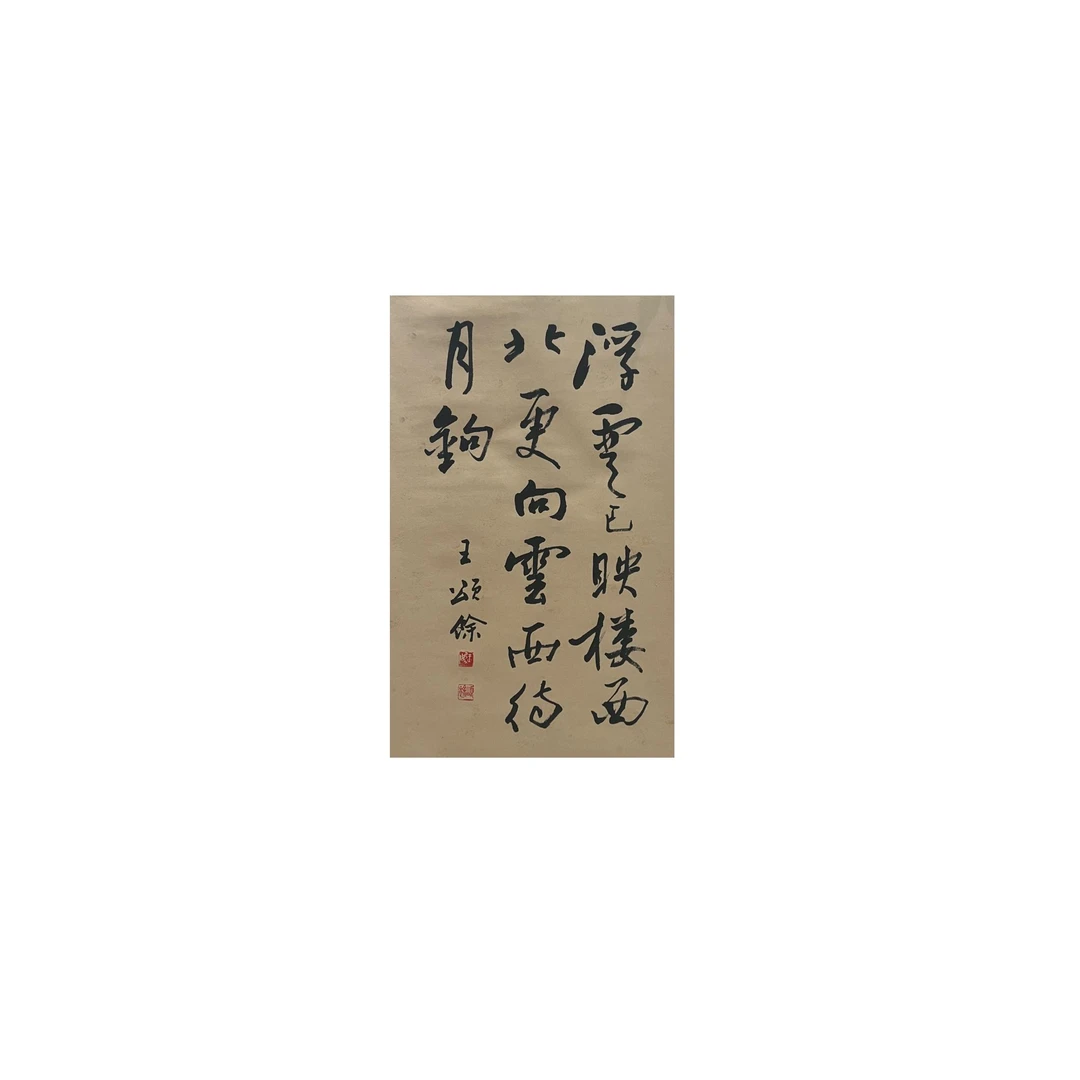 浮雲已映楼西
北更向雲西待
月鉤
王頌餘